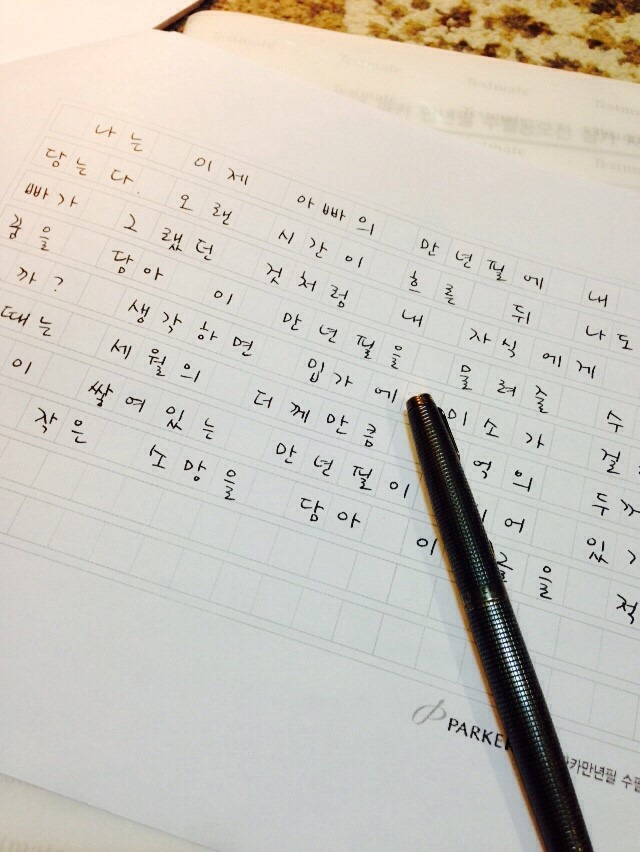 나는 이제 아빠의 만년필에 내
담는다. 오랜 시간이 흐른 뒤 나도
빠가 그랬던 것처럼 내 자식에게
꿈을 담아 이 만년필을 물려줄 수
까? 생각하면 입가에 미소가 걸
때는 세월의 더께만큼 억의 두께
이 쌓여있는 만년필이 어 있
작은 소망을 담아 이 글을 적
PARKER
카만년필 수필